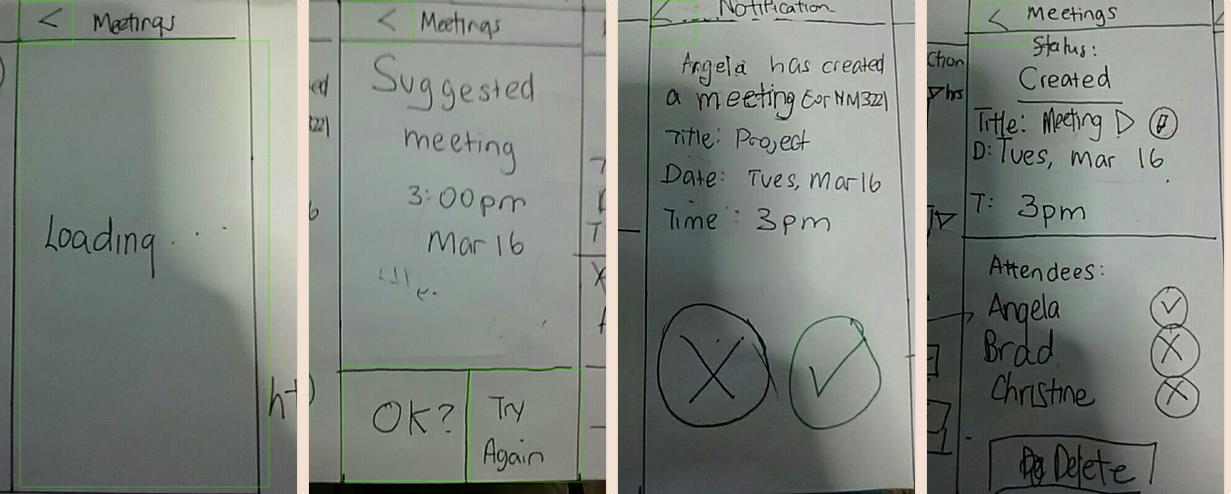 < Meetings
Loading...
< Meetings
Suggested
meeting
3:00pm
Mar 16
OK?
Try
Again
< Notification
Angela has created
a meeting for NM3221
Title: Project
Date: Tues, Mar 16
Time: 3pm
X
✓
< Meetings
Status:
Created
Title: Meeting
D: Tues, Mar 16
T: 3pm
Attendees:
Angela ✓
Brad X
Christine X
Delete